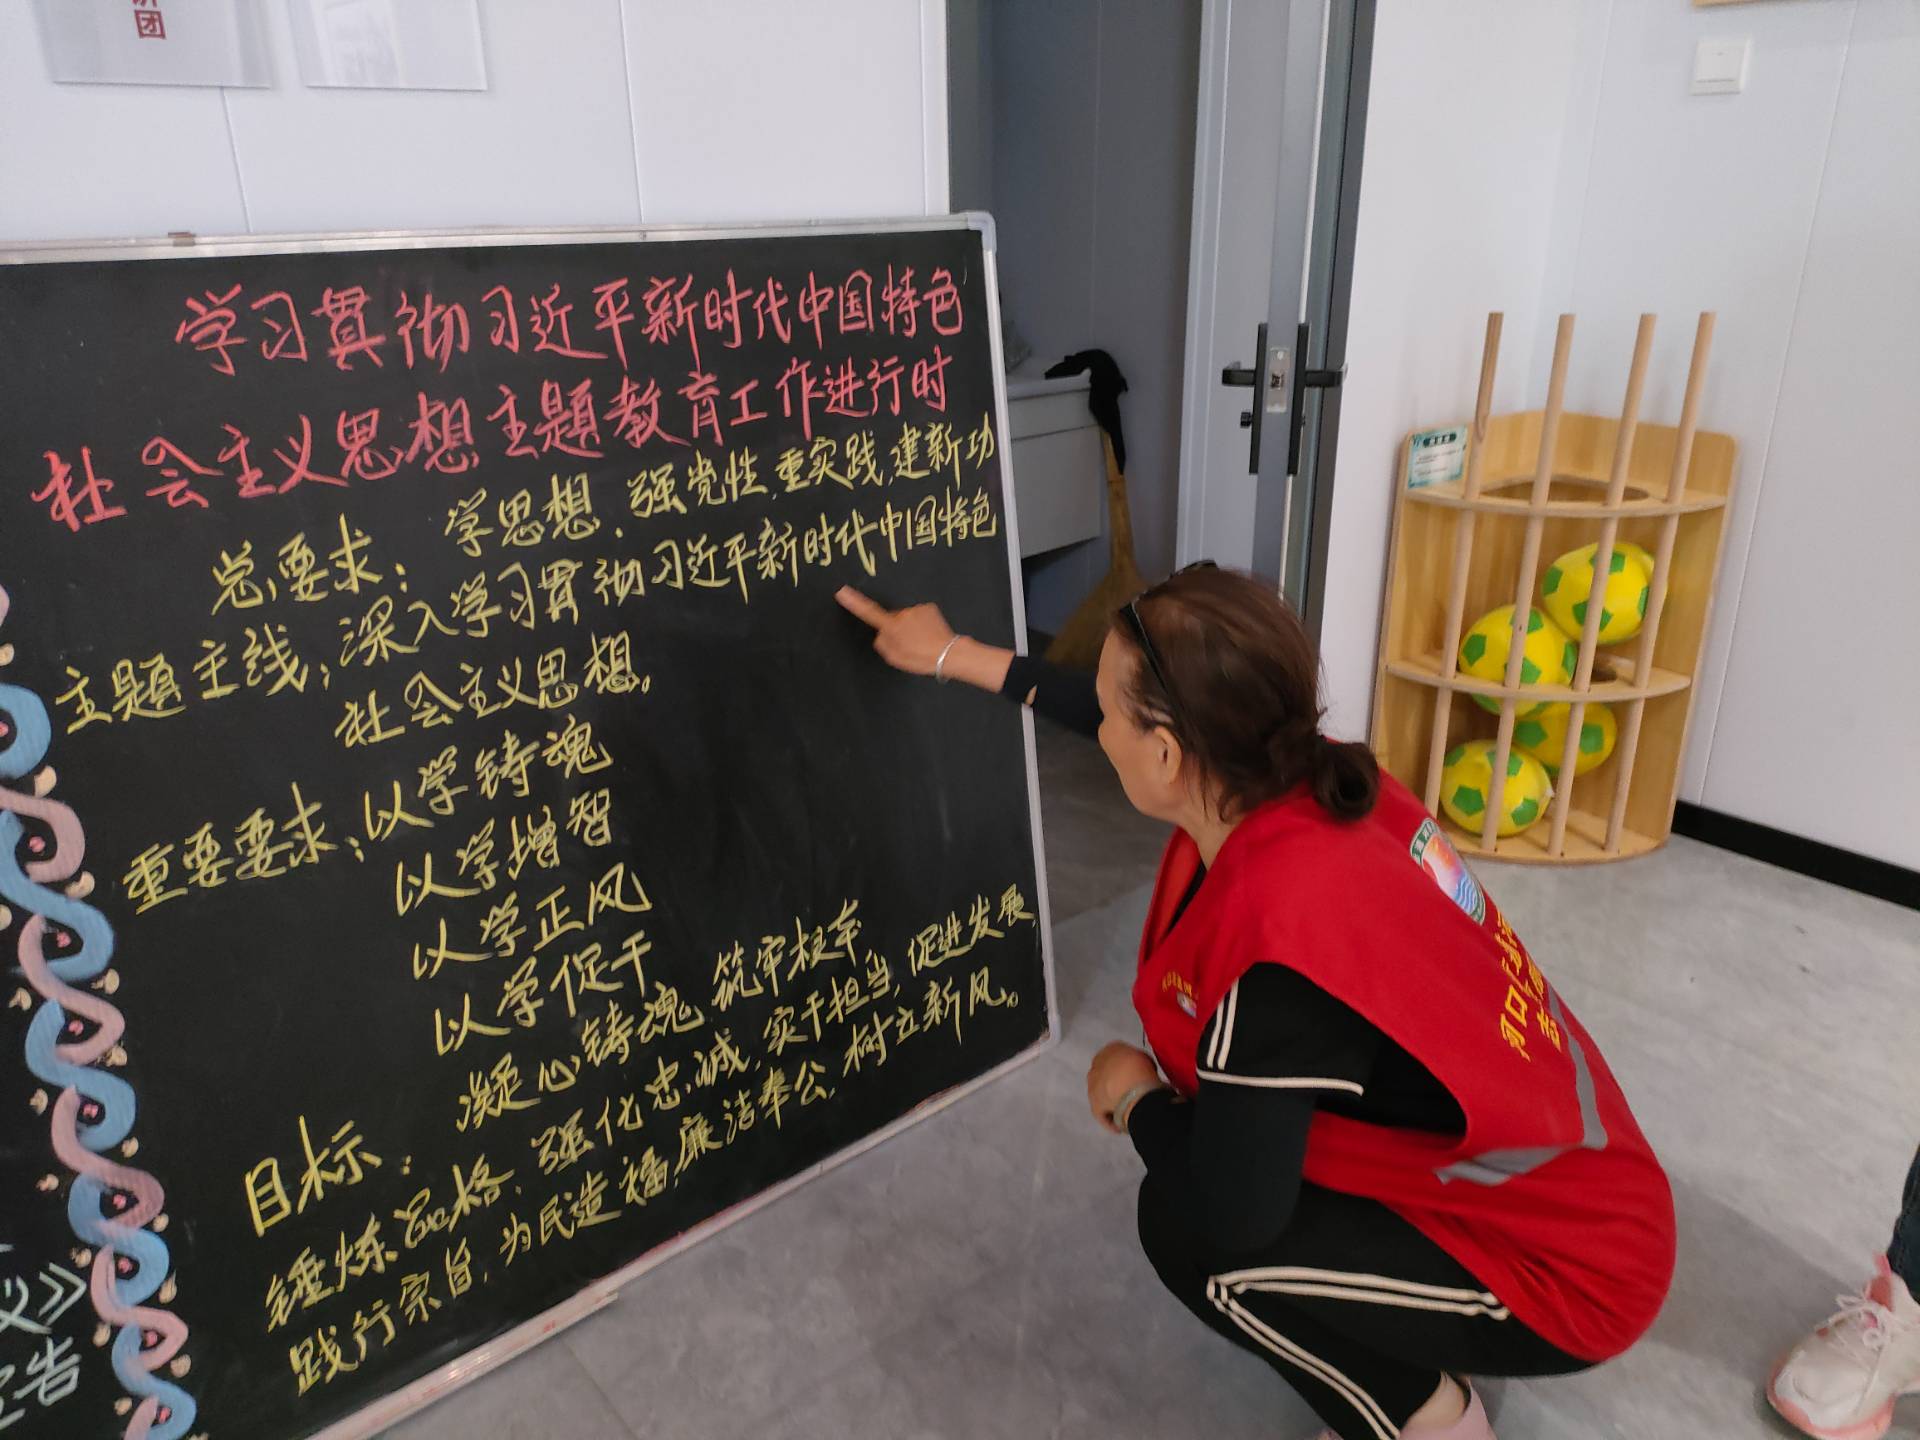 团
学习贯彻习近平新时代中国特色
社会主义思想主题教育工作进行时
总要求：学思想、强党性、重实践、建新功
主题主线：深入学习贯彻习近平新时代中国特色
社会主义思想。
重要要求：以学铸魂
以学增智
以学正风
以学促干
目标：凝心铸魂筑牢根本
锤炼品格、强化忠诚，实干担当，促进发展，
践行宗旨，为民造福，廉洁奉公，树立新风。
义》
告
河口
志